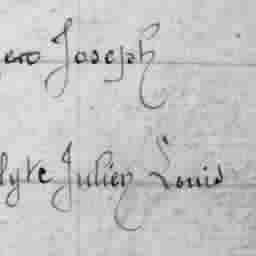 Joseph
lyte Julien Louis